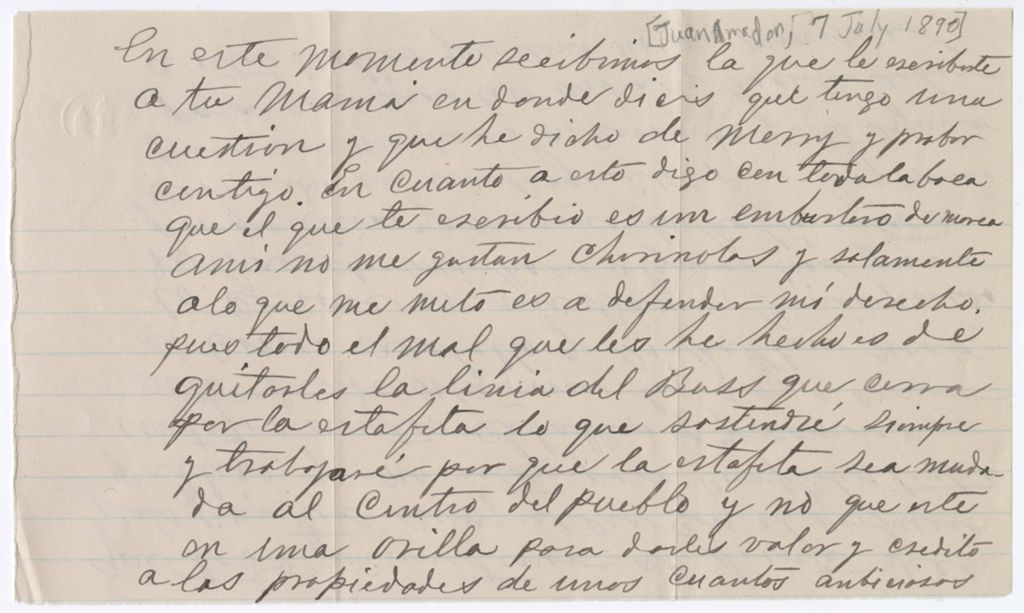 [Juan Amador, 7 July 1890]
En este momento recibimos la que le escribiste
a tu Mamá en donde dices que tengo una
cuestion y que he dicho de Merry y probar
contigo. En cuanto a esto digo con toda la boca
que el que te escribio es un embustero de marca
ami no me gustan Chirinolas y solamente
alo que me meto es a defender mi derecho.
pues todo el mal que les he hecho es de
quitarles la linia del Buss que corra
por la estafita lo que sostendré siempre
y trabajaré por que la estafita sea muda-
da al Centro del pueblo y no que este
en una orilla para darles valor y credito
a las propiedades de unos cuantos anbiciosos